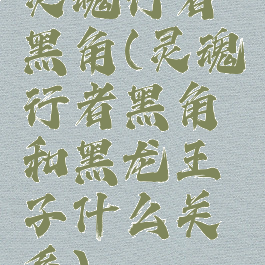 灵魂行者
黑角(灵魂
行者黑角
和黑龙王
子什么关
系)